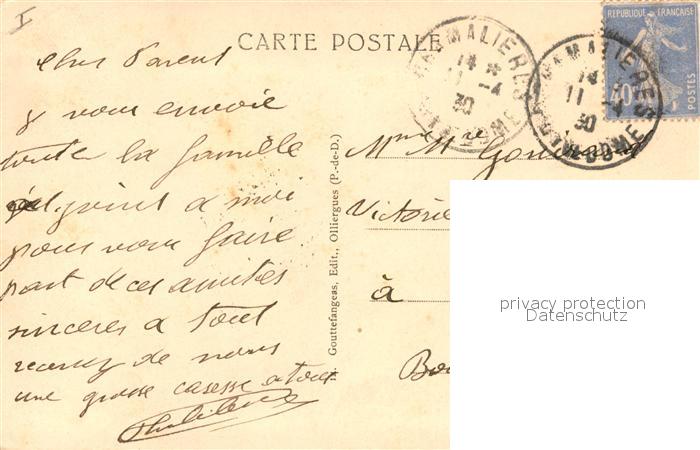 I
CARTE POSTALE
REPUBLIQUE FRANÇAISE
POSTES
MALIERES
14
11 -4
30
DOME
14
11 -4
30
DOME
Chers Parent
J vous envoie
toute la famille
joint a moi
pour vous faire
part de ces amities
sinceres a tout
recevez de nous
une grosse caresse a tous
Gouttefangeas, Edit., Olliergues (P.-de-D.)
Victorie
à
privacy protection
Datenschutz